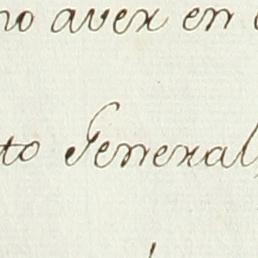 no aver en
to General,